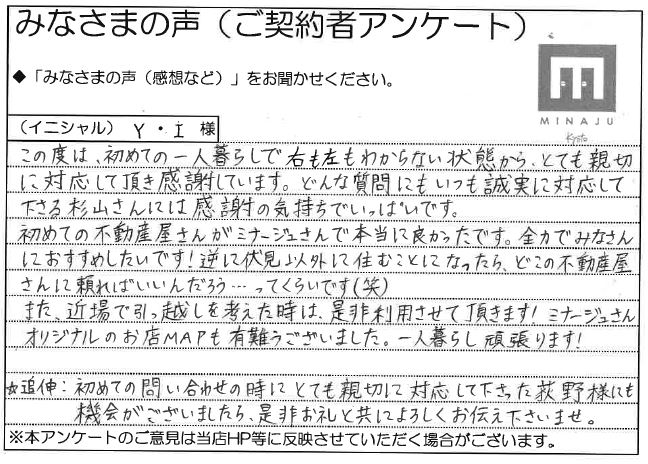 みなさまの声（ご契約者アンケート）
◆「みなさまの声（感想など）」をお聞かせください。
MINAJU
Kyoto
（イニシャル） Y・I 様
この度は、初めての一人暮らしで右も左もわからない状態から、とても親切
に対応して頂き感謝しています。どんな質問にもいつも誠実に対応して
下さる杉山さんには感謝の気持ちでいっぱいです。
初めての不動産屋さんがミナージュさんで本当に良かったです。全力でみなさん
におすすめしたいです！逆に伏見以外に住むことになったら、どこの不動産屋
さんに頼ればいいんだろう…ってくらいです(笑)
また、近場で引っ越しを考えた時は、是非利用させて頂きます！ミナージュさん
オリジナルのお店MAPも有難うございました。一人暮らし頑張ります！
☆追伸：初めての問い合わせの時にとても親切に対応して下さった荻野様にも
機会がございましたら、是非お礼と共によろしくお伝え下さいませ。
※本アンケートのご意見は当店HP等に反映させていただく場合がございます。